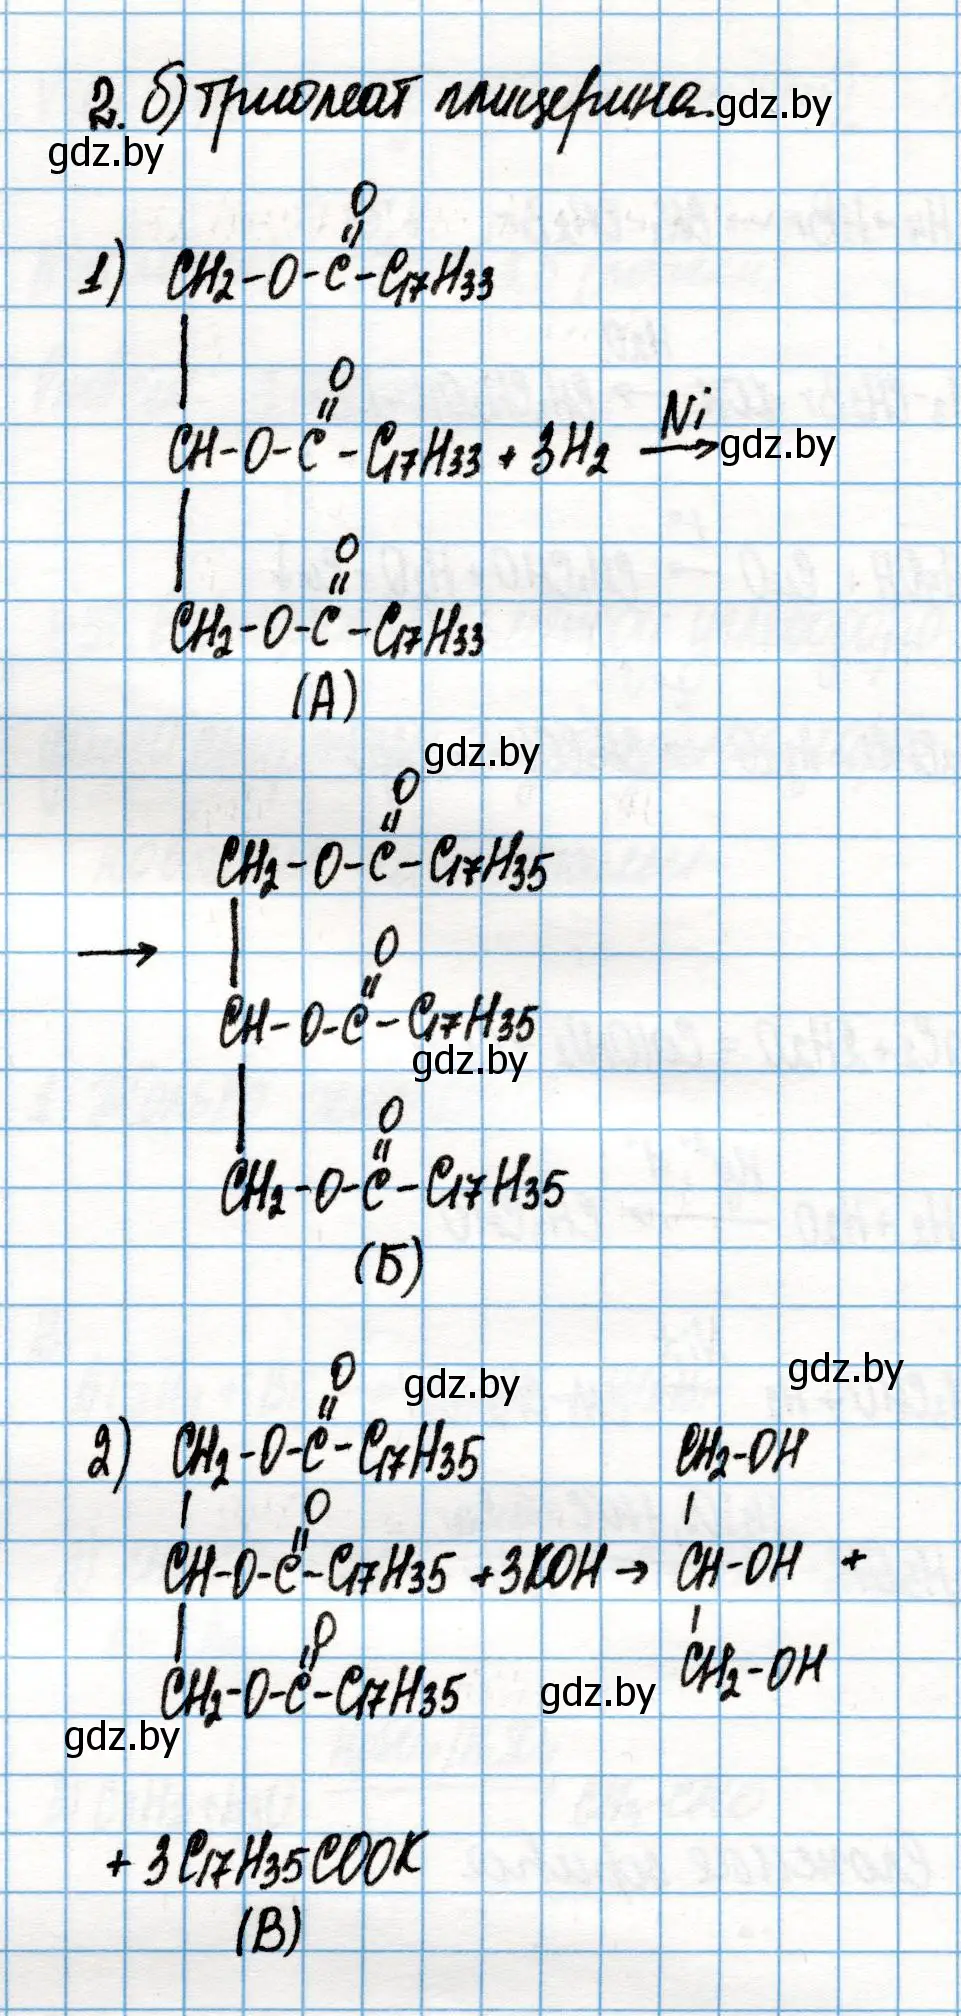 2. б) триолеат глицерина. gdz.by
gdz.by
O
1) CH2-O-C-C17H33
O
CH-O-C-C17H33 + 3H2 Ni→ gdz.by
O
CH2-O-C-C17H33
(А)
gdz.by
O
CH2-O-C-C17H35
→
O
CH-O-C-C17H35
gdz.by
O
CH2-O-C-C17H35
(Б)
O gdz.by gdz.by
2) CH2-O-C-C17H35 CH2-OH
O
CH-O-C-C17H35 + 3KOH → CH-OH +
O
CH2-O-C-C17H35 gdz.by CH2-OH
gdz.by
+ 3C17H35COOK
(В)